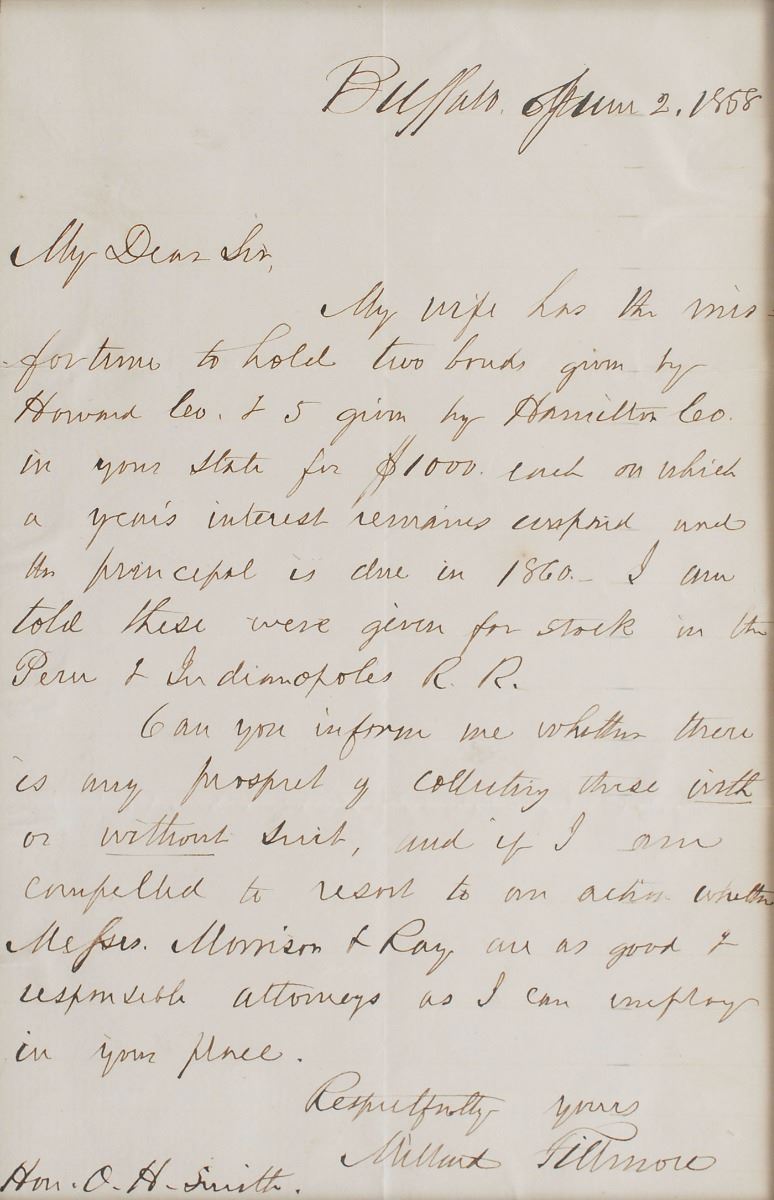 Buffalo. June 2, 1858
My Dear Sir,
My wife has the mis-
-fortune to hold two bonds given by
Howard Co. & 5 given by Hamilton Co.
in your state for $1000. each on which
a year's interest remains unpaid and
the principal is due in 1860.- I am
told these were given for stock in the
Peru & Indianapoles R. R.
Can you inform me whether there
is any prospect of collecting these with
or without suit, and if I am
compelled to resort to an action whether
Messrs. Morrison & Ray are as good &
responsible attorneys as I can employ
in your place.
Respectfully yours
Millard Fillmore
Hon. O. H. Smith.